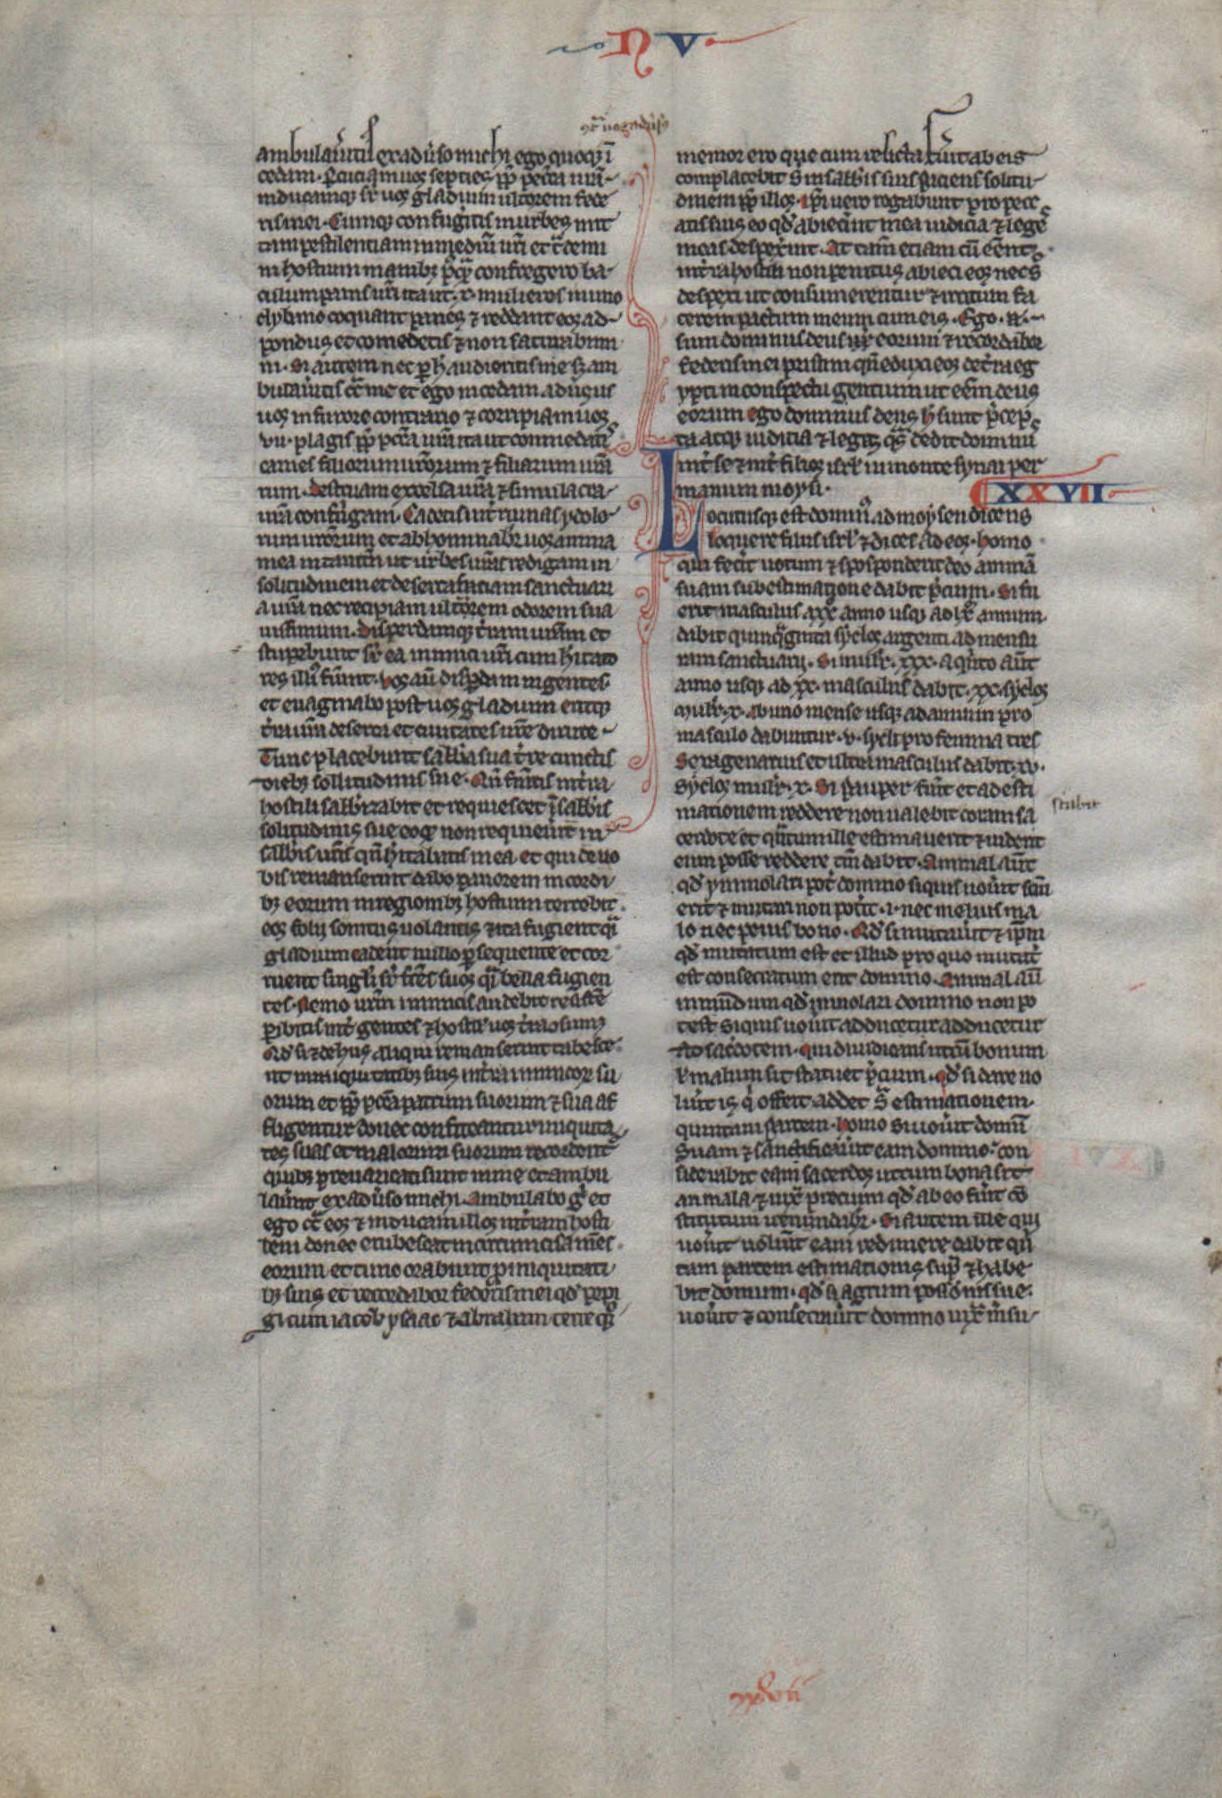 N V
ambulav̄itis ex adv̄so michi ego quoq; ī
cedam ꝑcuciam uos septies pp̄ peccata ur̄a
inducamq; sr̄ uos gladium ultorem fede
ris mei. Cumq; confuḡitis in urbes mit
tam pestilentiam in mediū ur̄i et tͣdemī
in hostium manib; pͦqͣ confregero ba
culum panis ur̄i ita ut .x. mulieres in uno
clybano coquant panes ⁊ reddant eos ad
pondus et comedetis ⁊ non saturabimi
ni. Si autem nec ꝑ h̄ audieritis me s; am
bulav̄itis cͦtͣ me et ego incedam adūsus
uos in furore contrario ⁊ corripiam uos
vii. plagis pp̄ pc̄ca ur̄a ita ut comedatis
carnes filiorum ur̄orum ⁊ filiarum ur̄a
rum. destruam excelsa ur̄a ⁊ simulacra
ur̄a confringam. Cadetis int̄ ruinas ydolo
rum ur̄orum et abhominabit̄ uos anima
mea intantū ut urbes ur̄as redigam in
solitudinem et deserta faciam sanctuari
a ur̄a nec recipiam ultͣ odorem sua
uissimum. Disperdamq; t̄ram ur̄am et
stupebunt sr̄ ea inimici ur̄i cum h̄itato
res illi fūint. Uos aū disꝑdam in gentes
et euaginabo post uos gladium eritq;
t̄ra ur̄a deserta et ciuitates ur̄e dirute
Tunc placebunt sabb̄a sua t̄re cunctis
dieb; sollitudinis sue. Qn̄ fūitis in t̄ra
hostili sabb̄izabit et requiescet ī sabb̄is
solitudinis sue eo qͦ non requieūit in
sabb̄is ur̄is qn̄ h̄itabatis in ea et qui de uo
bis remanserint dabo pauorem in cordi
b; eorum in regionib; hostium terrebit
eos solij sonitus uolantis ⁊ ita fugient qͣi
gladium cadent nullo ꝑsequente et cor
ruent singl̄i sr̄ fr̄es suos qͣi bella fugien
tes. Nemo ur̄m inimicis audebit resiste
ꝑibitis int̄ gentes ⁊ hostil' uos t̄ra
Qd' si ⁊ de hiis aliqui remanserint tabesce
nt in iniquitatib; suis in t̄ra inimicoꝝ su
orum et pp̄ pc̄ca patrum suorum ⁊ sua af
fligentur donec confiteantur iniquita
tes suas et maiorum suorum recordent̄
quib; p̄uaricati sunt in me et ambu
lav̄int ex adūso michi. Ambulabo gͦ et
ego cͦtͣ eos ⁊ inducam illos in t̄ram hosti
lem donec erubescat incircumcisa mēs
eorum et tunc orabunt ꝓ iniquitati
b; suis et recordabor fed̄is mei qd' pepi
gi cum iacob ysaac ⁊ abraham terre qͦꝫ
memor ero que cum relicta fūit ab eis
complacebit s' in sabb̄is suis paciens solitu
dinem pp̄ illos. ip̄i uero rogabunt pro pecc
atis suis eo qd' abiecīnt mea iudicia ⁊ leges
meas despex̄int. At tam̄ etiam cū cēnt
in t̄ra hostili non penitus abieci eos nec s'
despexi ut consumerentur ⁊ irritum fa
cerem pactum meum cum eis. Ego .n.
sum dominus deus eorum ⁊ recordabor
federis mei pristini qn̄ eduxi eos de t̄ra eg
ypti in conspectu gentium ut eēm deus
eorum ego dominus deus h̄ sunt p̄cep
ta atq; iudicia ⁊ leges qͣs dedit dominus
int̄ se ⁊ int̄ filios isrl' in monte synai per
manum moysi.
XXVII
Locutusq; est dominus ad moysen dicens
loquere filiis isrl' ⁊ dices ad eos. homo
qui fecit uotum ⁊ spospondit deo animā
suam sub estimatione dabit p̄cium. Si fu
erit masculus a .xx. anno usq; ad lx. annum
dabit quinqͣginta syclos argenti ad mensu
ram sanctuarij. Si mulr̄ .xxx. a qͥnto aūt
anno usq; ad .xx. masculus dabit .xx. syclos
Mulr̄ .x. ab uno mense usq; ad annum pro
masculo dabuntur .v. sycli pro femina tres
Sexagenarius et ultra masculus dabit .xv.
syclos mulr̄ .x. Si pauper fūit et ad esti
mationem reddere non ualebit coram sa
cerdote et qͣtum ille estimauerit ⁊ uiderit
eum posse reddere tm̄ dabit. Animal aūt
qd' ymmolari pot̄ domino siquis uoūit scm̄
erit ⁊ mutari non pot̄it .i. nec melius ma
lo nec peius bono. Qd' si mutaūit ⁊ ip̄m
qd' mutatum est et illud pro quo mutat̄
est consecratum erit domino. Animal aū
inmūdum qd' ymolari domino non po
test siquis uoūit adducetur adducetur
ad sac̄dotem. qui diiudicans utrū bonum
ł malum sit statuet p̄cium. qd' si dare uo
lūit is qͥ offert addet s' estimationem
quintam partem. homo si uoūit domū
suam ⁊ sanctificaūit eam domino. con
siderabit eam sacerdos utrum bona sit
an mala ⁊ iuxͣ precium qd' ab eo fūit cō
stitutum uenundabit̄. Si autem ille qui
uoūit uolūit eam redimere dabit qn̄
tam partem estimationis supͣ ⁊ habe
bit domum. qd' si agrum poss̄onis sue
uoūit ⁊ consecraūit domino iuxͣ m̄su